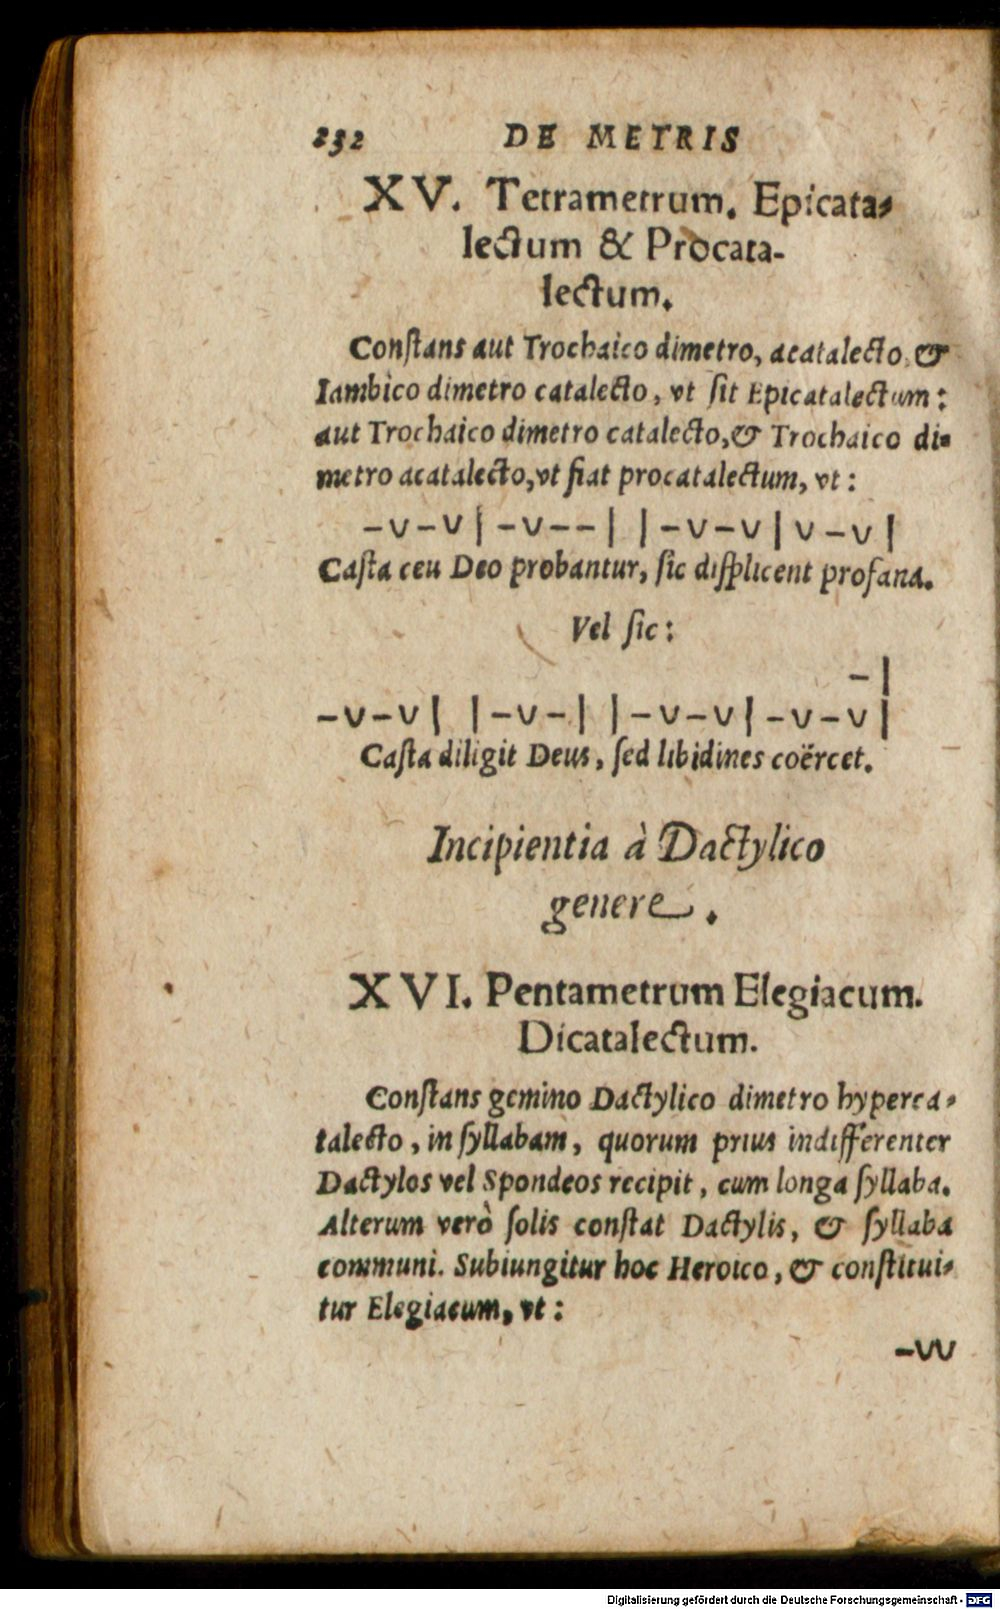 232 DE METRIS
XV. Tetrametrum. Epicata-
lectum & Procata-
lectum.
Conſtans aut Trochaico dimetro, acatalecto, &
Iambico dimetro catalecto, vt ſit Epicatalectum:
aut Trochaico dimetro catalecto, & Trochaico di-
metro acatalecto, vt fiat procatalectum, vt:
–v–v| –v––| |–v–v|v–v|
Caſta ceu Deo probantur, ſic diſplicent profana.
Vel ſic:
–|
–v–v| |–v–| |–v–v|–v–v|
Caſta diligit Deus, ſed libidines coërcet.
Incipientia à Dactylico
genere.
XVI. Pentametrum Elegiacum.
Dicatalectum.
Conſtans gemino Dactylico dimetro hyperca-
talecto, in ſyllabam, quorum prius indifferenter
Dactylos vel Spondeos recipit, cum longa ſyllaba.
Alterum verò ſolis conſtat Dactylis, & ſyllaba
communi. Subiungitur hoc Heroico, & conſtitui-
tur Elegiacum, vt:
–vv
Digitalisierung gefördert durch die Deutsche Forschungsgemeinschaft - DFG